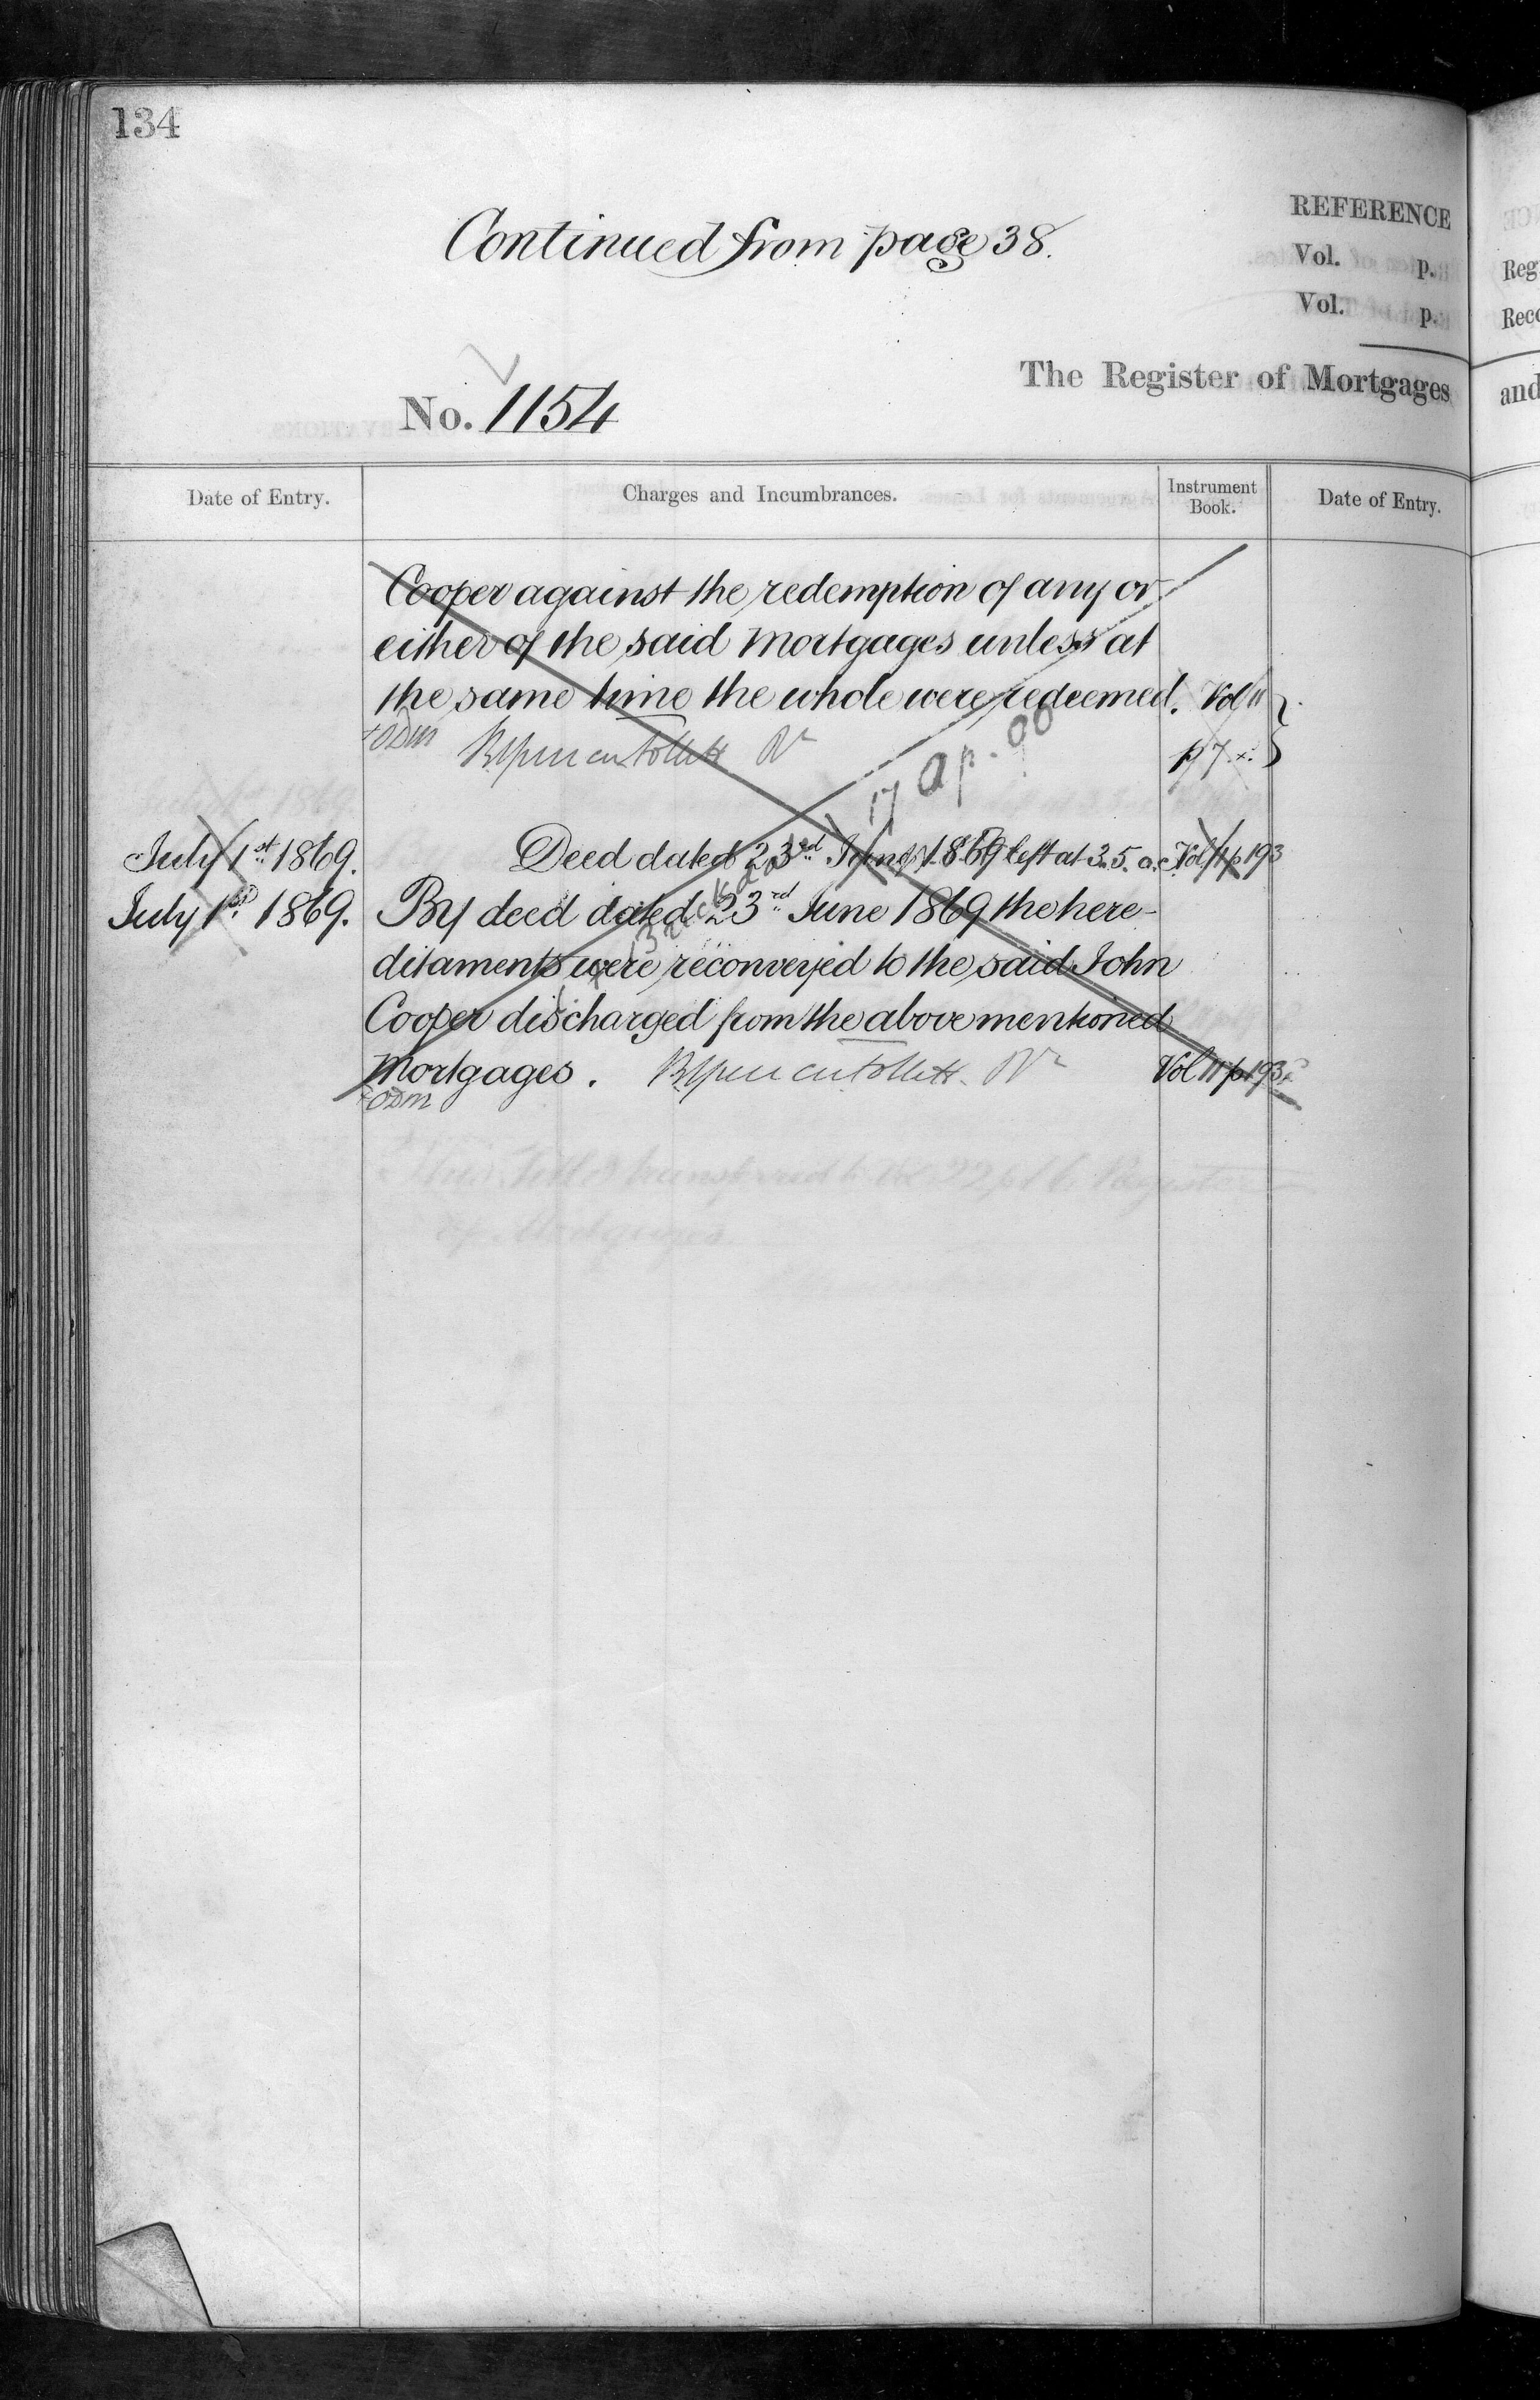 134
Continued from page 38.
REFERENCE
Vol. p.
Vol. p.
No. 1154
The Register of Mortgages
Date of Entry.
Charges and Incumbrances.
Instrument Book.
Date of Entry.
Cooper against the redemption of any or
either of the said Mortgages unless at
the same time the whole were redeemed. Vol 11
p 7
17 Ap. 00
July 1st 1869. Deed dated 23rd June 1869 left at 3.5. Vol 11 p 193
July 1st 1869. By deed dated 23rd June 1869 the here-
ditaments were reconveyed to the said John
Cooper discharged from the above mentioned
Mortgages. Vol 11 p 193
Reg
Reco
and